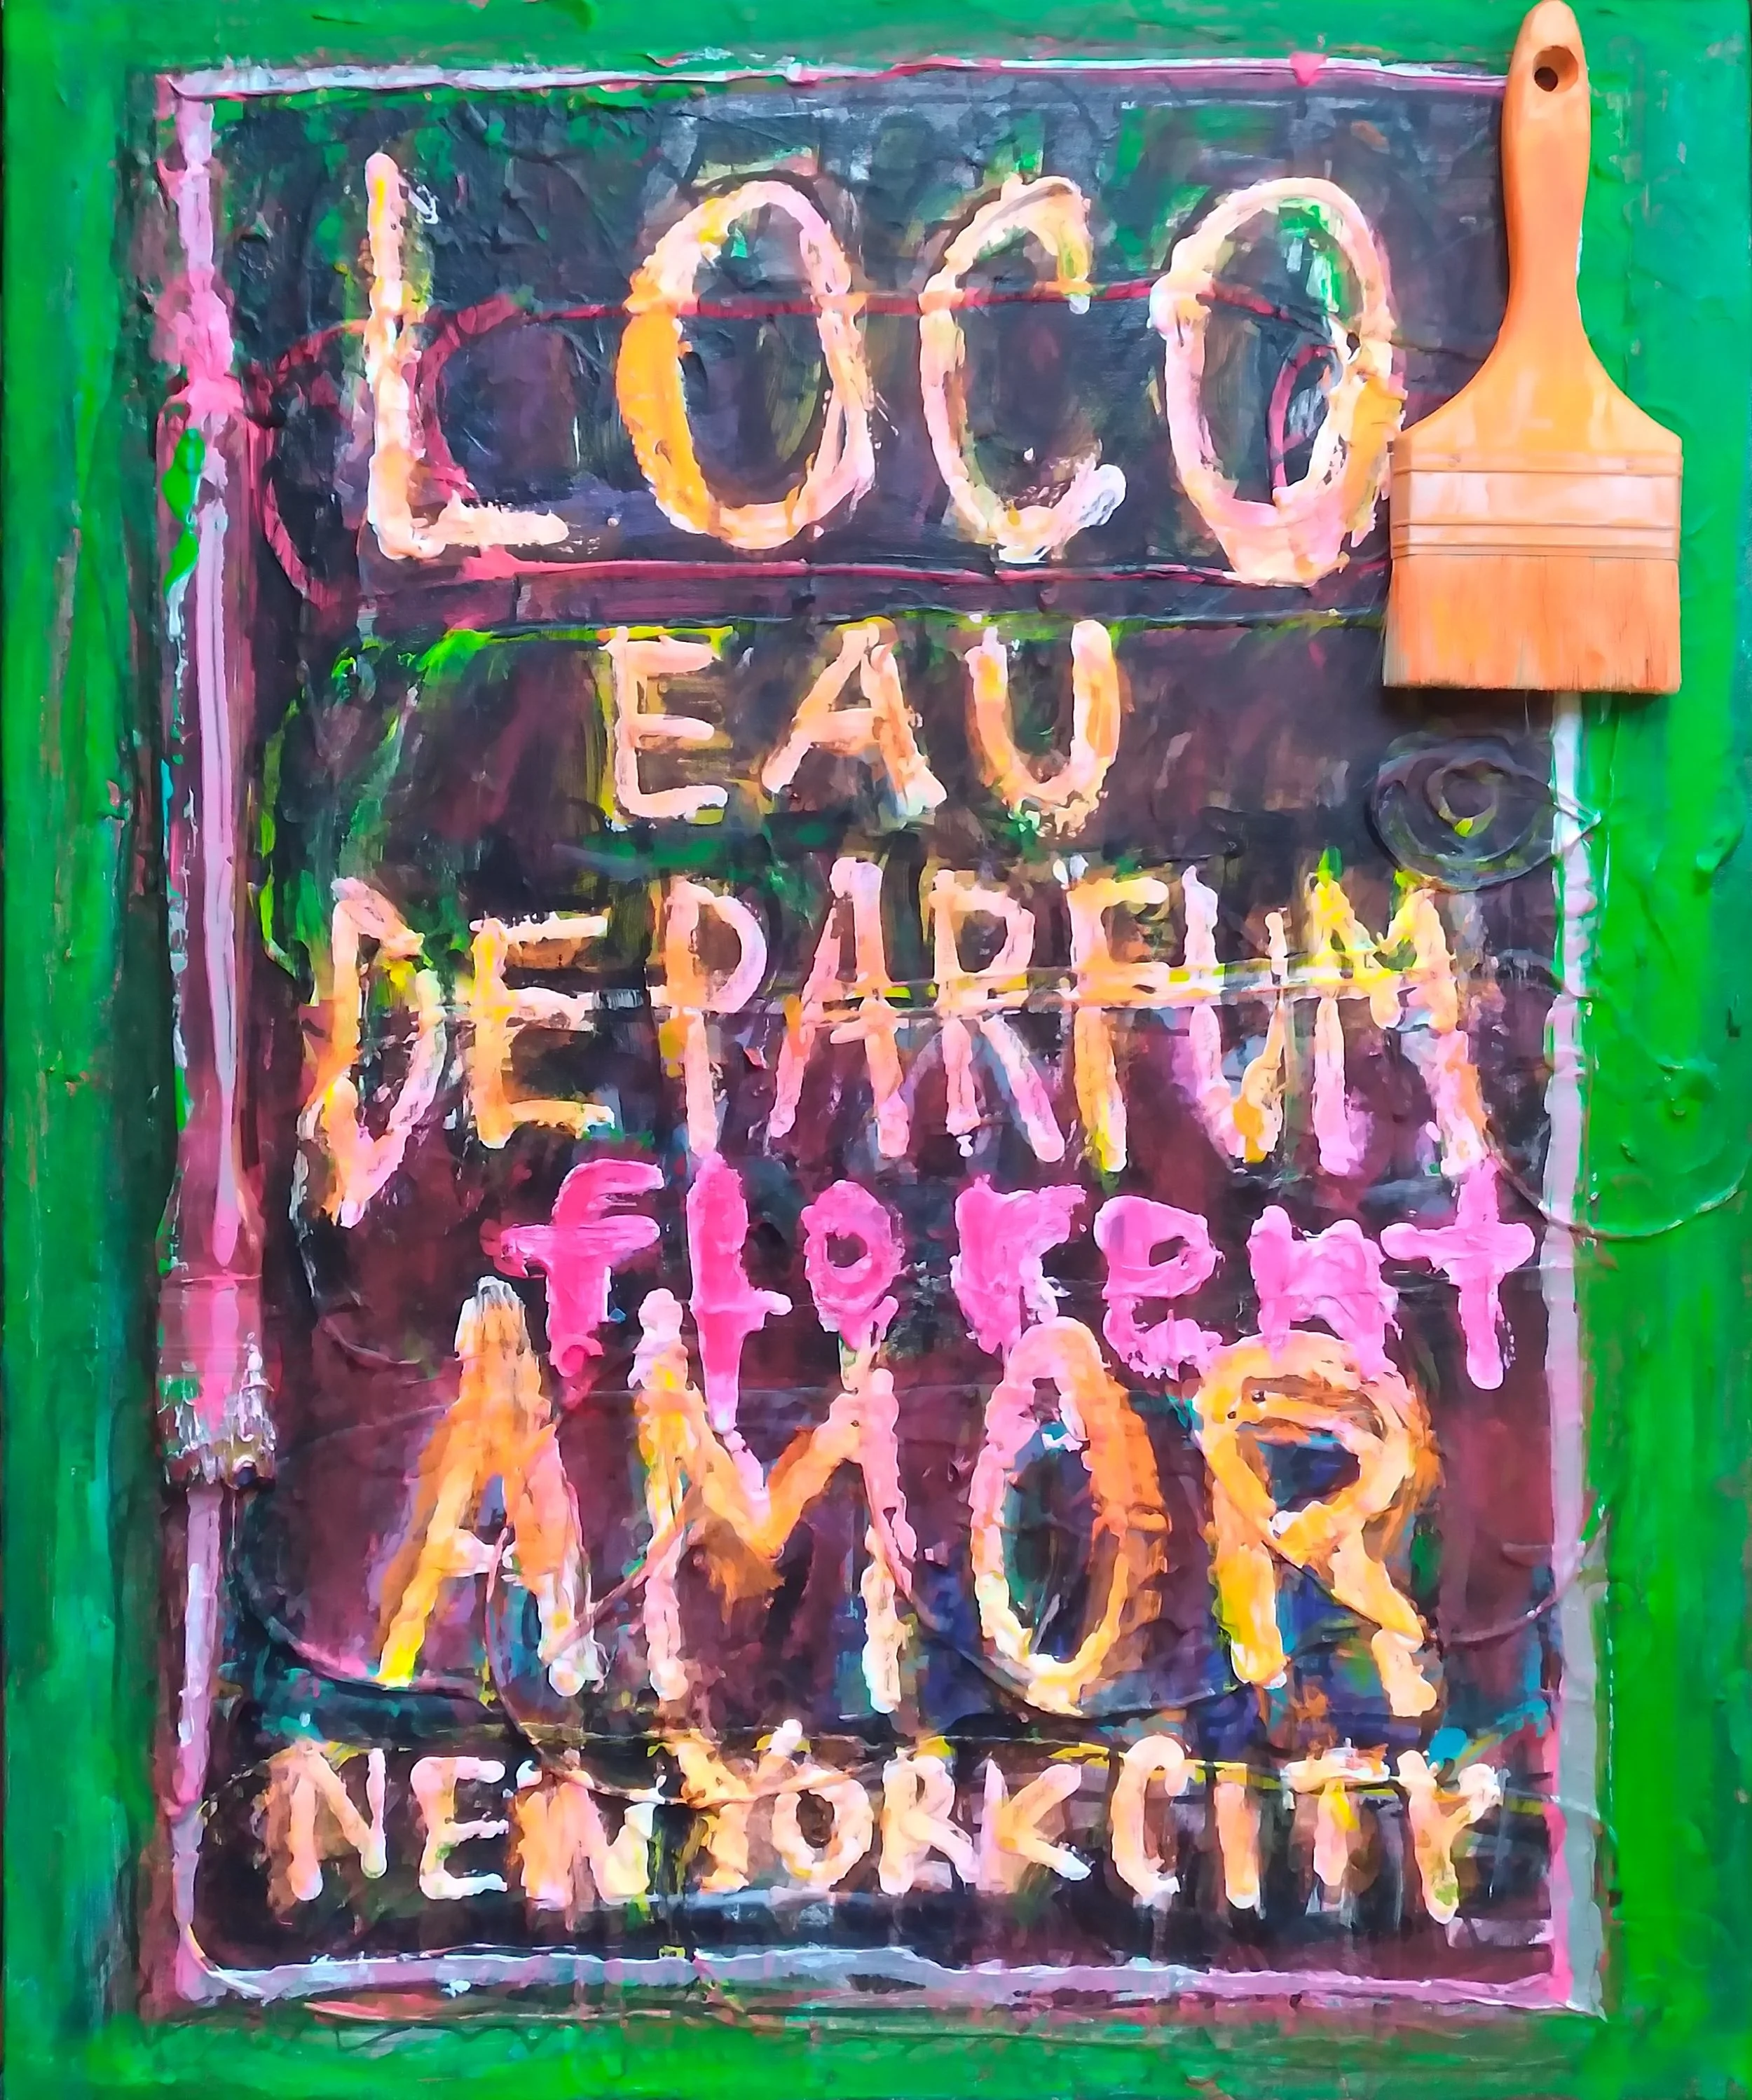 LOCO
EAU
DE PARFUM
florent
AMOR
NEW YORK CITY